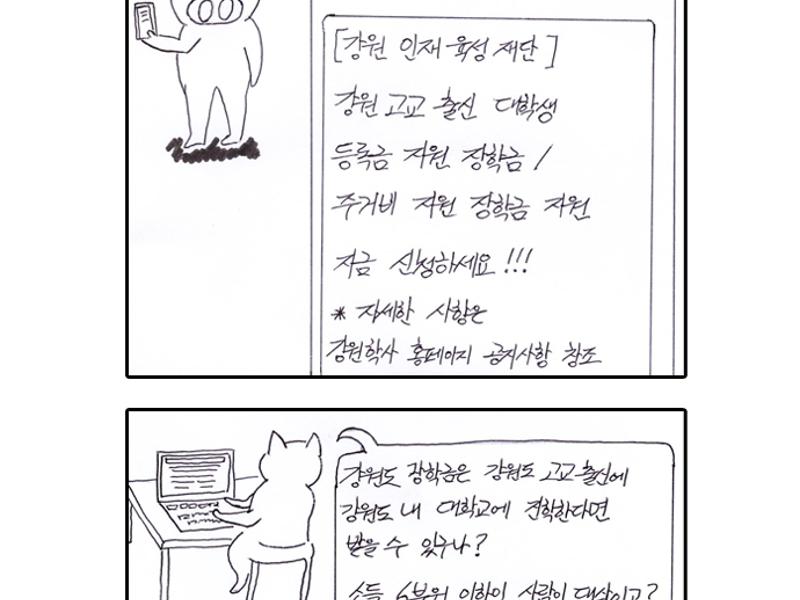 [강원 인재 육성 재단]
강원 고교 출신 대학생
등록금 지원 장학금 /
주거비 지원 장학금 지원
지금 신청하세요!!!
* 자세한 사항은
강원학사 홈페이지 공지사항 참조
강원도 장학금은 강원도 고교 출신에
강원도 내 대학교에 진학한다면
받을 수 있구나?
소득 6분위 이하인 사람이 대상이고?